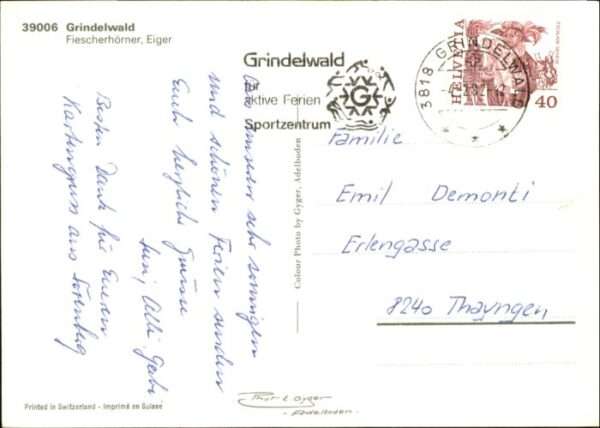 39006 Grindelwald
Fiescherhörner, Eiger
Grindelwald
für
aktive Ferien
Sportzentrum
G
3818 GRINDELWALD
HELVETIA
40
Familie
Emil Demonti
Erlengasse
8240 Thayngen
Aus unseren sehr sonnigen
und schönen Ferien senden
Euch herzliche Grüsse
Susi, Albi, Gabi
Besten Dank für Euren
Kartengruss aus
Colour Photo by Gyger, Adelboden
Printed in Switzerland - Imprimé en Suisse
Gyger
- Adelboden -